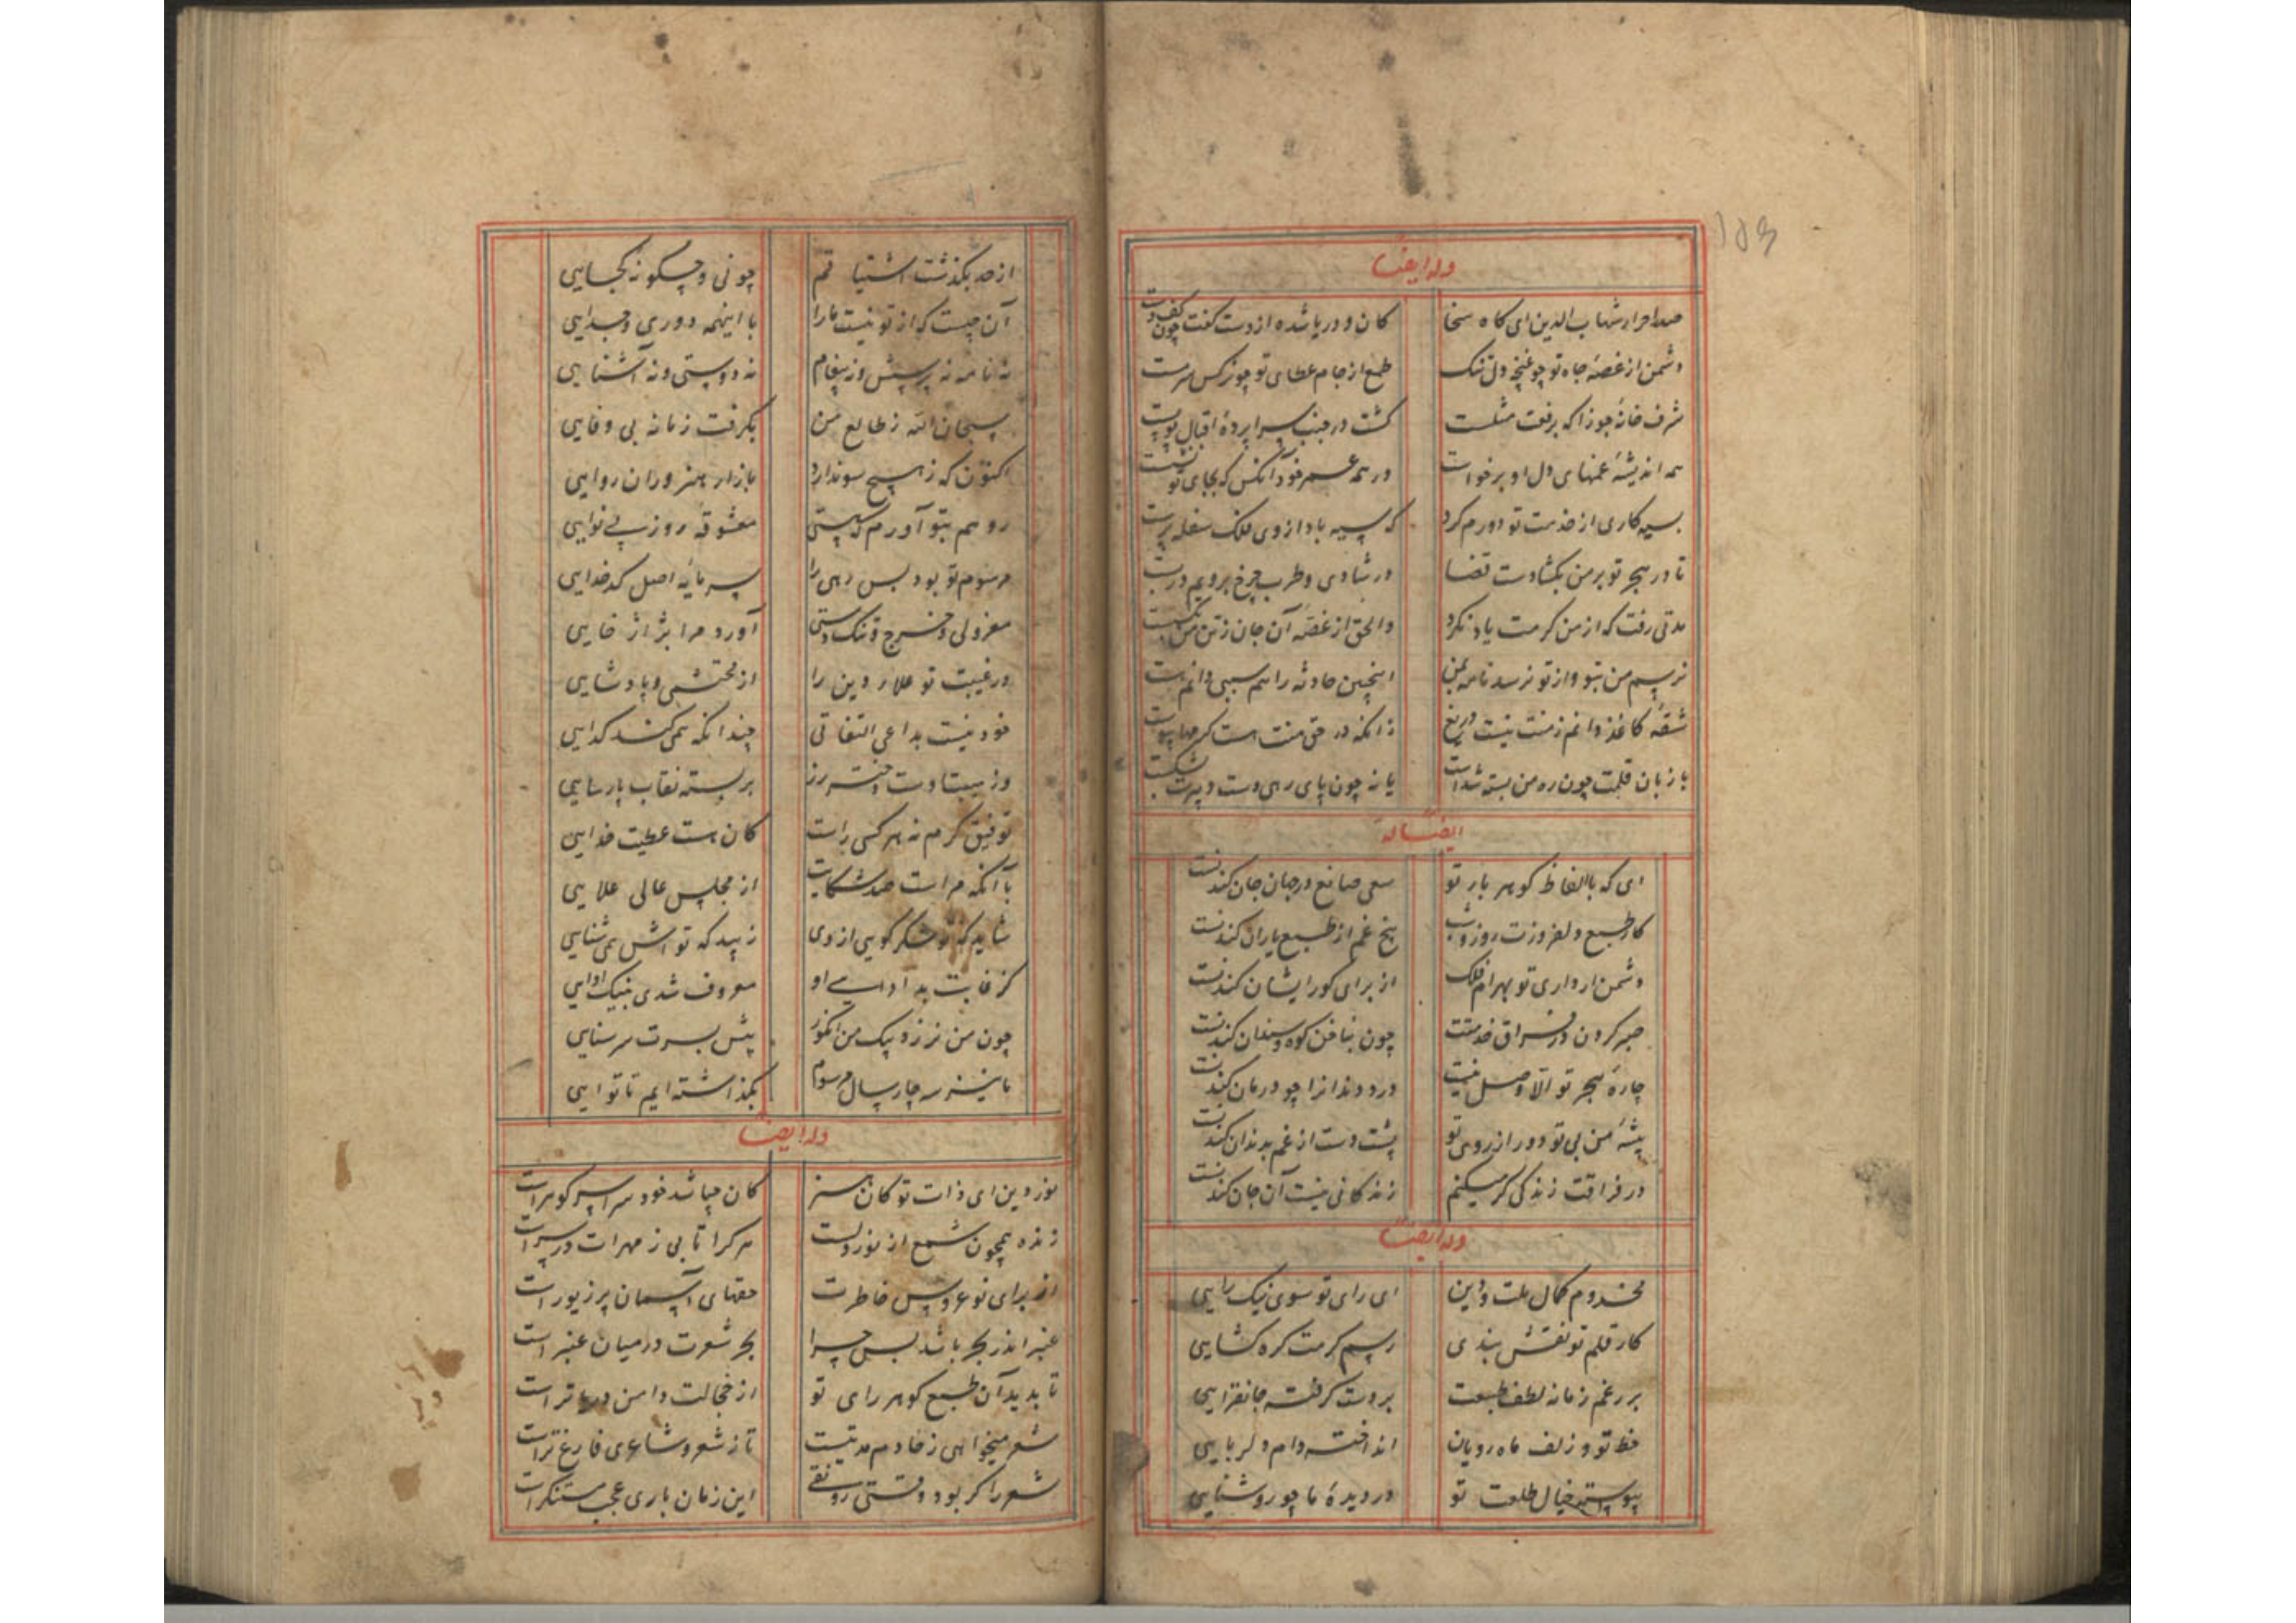 وله ایضا
صدر احرار شهاب الدین ای کاه سخا
کان و دریا شده از دست کفت چون کف دست
دشمن از غصه جاه تو چو غنچه دل تنک
طمع از جام عطای تو چو نرکس سرمست
شرف خانه جوزا که برفعت مثلست
کشت در جنب سراپرده اقبال تو پست
همه اندیشه غمهای دل او برخواست
در همه عمر خود آنکس که بجای تو نشست
سیه کاری از خدمت تو دورم کرد
که سیه باد ازوی فلک سفله پرست
تا در هجر تو بر من بکشادست قضا
در شادی و طرب چرخ برویم دربست
مدتی رفت که از من کرمت یاد نکرد
والحق از غصه آن جان ز تن من بکسست
نرسم من بتو و از تو نرسد نامه بمن
اینچنین حادثه را هم سببی دانم هست
شقه کاغذ دانم ز منت نیست دریغ
زانکه در حق منت هست کرمها پیوست
یا زبان قلمت چون ره من بسته شدست
یا نه چون پای رهی دست دبیرت بشکست
ایضا له
ای که با الفاظ کوهر بار تو
سعی صانع در جان جان کندنست
کار طبع دلفروزت روز و شب
بیخ غم از طبع یاران کندنست
دشمن ار داری تو بهرام فلک
از برای کور ایشان کندنست
صبر کردن در فراق خدمتت
چون بناخن کوه و سندان کندنست
چاره هجر تو الا وصل نیست
درد دندانرا چو درمان کندنست
پیشه من بی تو و دور از روی تو
پشت دست از غم بدندان کندنست
در فراقت زندکی کر میکنم
زندکانی نیست آن جان کندنست
وله ایضا
مخدوم کمال ملت و دین
ای رای تو سوی نیک رایی
کار قلم تو نقش بندی
رسم کرمت کره کشایی
بر رغم زمانه لطف طبعت
بر دست کرفته جانفزایی
خط تو و زلف ماه رویان
انداخته دام دلربایی
پیوسته خیال طلعت تو
در دیده ما چو روشنایی
از حد بکذشت اشتیاقم
چونی و چکونه کجایی
آن چیست که از تو نیست مارا
با اینهمه دوری و جدایی
نه نامه نه پرسش و نه پیغام
نه دوستی و نه آشنایی
سبحان الله ز طالع من
بکرفت زمانه بی وفایی
اکنون که ز هیچ سو ندارد
بازار هنروران روایی
رو هم بتو آورم که هستی
معشوقه روز بی نوایی
مرسوم تو بود بس رهی را
سرمایه اصل کدخدایی
معزولی و خرج و تنک دستی
آورد مرا بژاژ خایی
در غیبت تو علاء دین را
از محتشمی و پادشایی
خود نیست بداعی التفاتی
چندانکه همی کند کدایی
وز بیم عتاب دختر رز
بربسته نقاب پارسایی
توفیق کرم نه هر کسی راست
کان هست عطیت خدایی
با آنکه مراست صد شکایت
از مجلس عالی علایی
شاید که تو شکر کویی از وی
زیبد که تو اش همی ثنایی
کز غایت بد ادایی او
معروف شدی بنیک ادایی
چون من نرزد بیک من انکور
پیش پسرت سر سنایی
ما نیز سه چار سال مرسوم
بکذاشته ایم تا تو ایی
وله ایضا
نور دین ای ذات تو کان هنر
کان چباشد خود سراسر کوهرست
زنده همچون شمع از نور دلست
هر کرا تابی ز مهرت در سرست
از برای نوعروس خاطرت
حقهای آسمان پر زیورست
عنبر اندر بحر باشد بس چرا
بحر شعرت در میان عنبرست
تا بدید آن طبع کوهر رای تو
از خجالت دامن دریا ترست
شعر میخواهی ز خادم مدتیست
تا ز شعر و شاعری فارغ ترست
شعر را کر بود وقتی رونقی
این زمان باری عجب مستنکرست